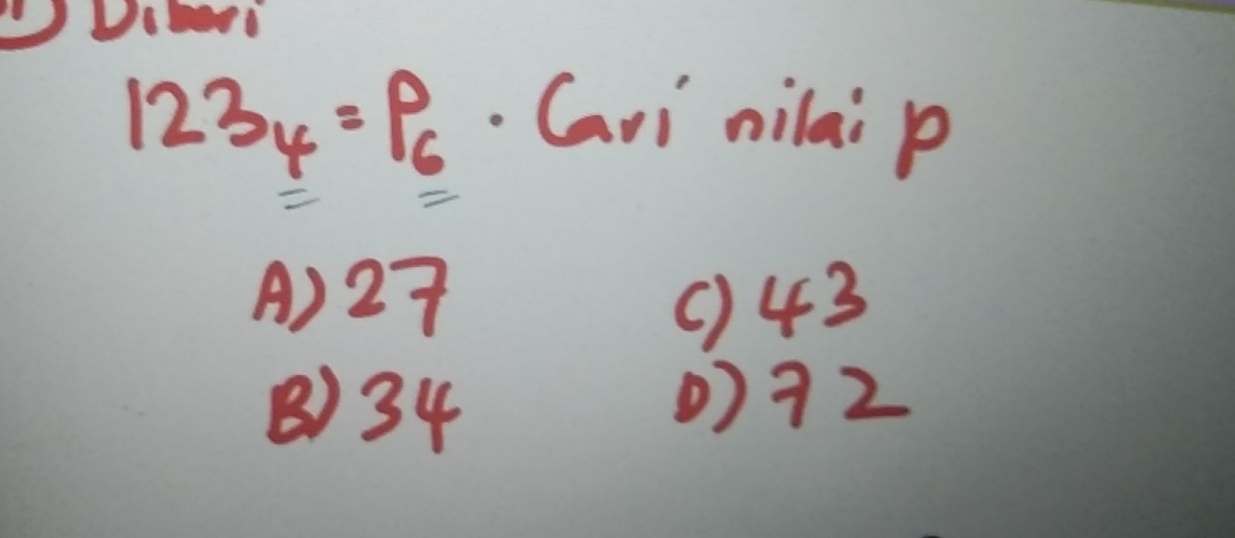 Diberi
123₄ = P₆ . Cari nilai p
A) 27 C) 43
B) 34 D) 72